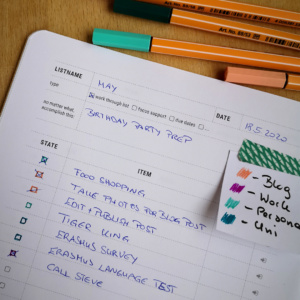 LISTNAME
MAY
Type
work through list focus support due dates
DATE
19.5.2020
no matter what,
accomplish this:
BIRTHDAY PARTY PREP
STATE
ITEM
FOOD SHOPPING
TAKE PHOTOS FOR BLOG POST
EDIT + PUBLISH POST
TIGER KING
ERASMUS SURVEY
ERASMUS LANGUAGE TEST
CALL STEVE
- Blog
- Work
- Personal
- Uni